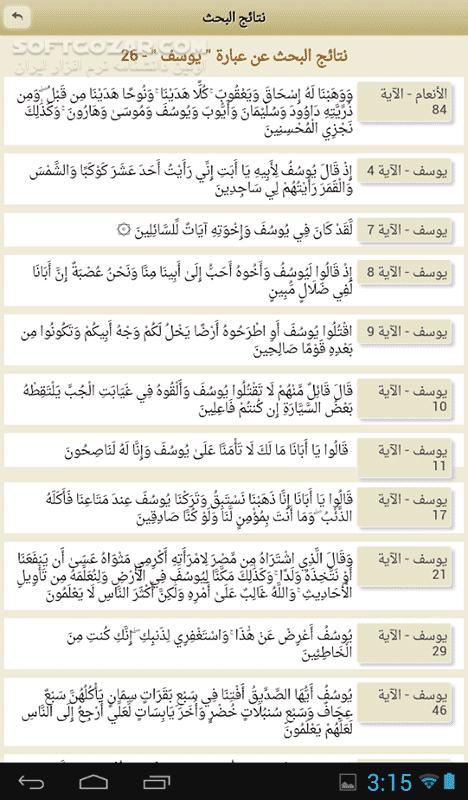 نتائج البحث
SOFTGOZAR.COM
اولین دانشنامه نرم افزار ایران
نتائج البحث عن عبارة " يوسف " - 26
الأنعام - الآية
84
وَوَهَبْنَا لَهُ إِسْحَاقَ وَيَعْقُوبَ ۚ كُلًّا هَدَيْنَا ۚ وَنُوحًا هَدَيْنَا مِن قَبْلُ ۖ وَمِن
ذُرِّيَّتِهِ دَاوُودَ وَسُلَيْمَانَ وَأَيُّوبَ وَيُوسُفَ وَمُوسَىٰ وَهَارُونَ ۚ وَكَذَٰلِكَ
نَجْزِي الْمُحْسِنِينَ
يوسف - الآية 4
إِذْ قَالَ يُوسُفُ لِأَبِيهِ يَا أَبَتِ إِنِّي رَأَيْتُ أَحَدَ عَشَرَ كَوْكَبًا وَالشَّمْسَ
وَالْقَمَرَ رَأَيْتُهُمْ لِي سَاجِدِينَ
يوسف - الآية 7
لَّقَدْ كَانَ فِي يُوسُفَ وَإِخْوَتِهِ آيَاتٌ لِّلسَّائِلِينَ ۞
يوسف - الآية 8
إِذْ قَالُوا لَيُوسُفُ وَأَخُوهُ أَحَبُّ إِلَىٰ أَبِينَا مِنَّا وَنَحْنُ عُصْبَةٌ إِنَّ أَبَانَا
لَفِي ضَلَالٍ مُّبِينٍ
يوسف - الآية 9
اقْتُلُوا يُوسُفَ أَوِ اطْرَحُوهُ أَرْضًا يَخْلُ لَكُمْ وَجْهُ أَبِيكُمْ وَتَكُونُوا مِن
بَعْدِهِ قَوْمًا صَالِحِينَ
يوسف - الآية
10
قَالَ قَائِلٌ مِّنْهُمْ لَا تَقْتُلُوا يُوسُفَ وَأَلْقُوهُ فِي غَيَابَتِ الْجُبِّ يَلْتَقِطْهُ
بَعْضُ السَّيَّارَةِ إِن كُنتُمْ فَاعِلِينَ
يوسف - الآية
11
قَالُوا يَا أَبَانَا مَا لَكَ لَا تَأْمَنَّا عَلَىٰ يُوسُفَ وَإِنَّا لَهُ لَنَاصِحُونَ
يوسف - الآية
17
قَالُوا يَا أَبَانَا إِنَّا ذَهَبْنَا نَسْتَبِقُ وَتَرَكْنَا يُوسُفَ عِندَ مَتَاعِنَا فَأَكَلَهُ
الذِّئْبُ ۖ وَمَا أَنتَ بِمُؤْمِنٍ لَّنَا وَلَوْ كُنَّا صَادِقِينَ
يوسف - الآية
21
وَقَالَ الَّذِي اشْتَرَاهُ مِن مِّصْرَ لِامْرَأَتِهِ أَكْرِمِي مَثْوَاهُ عَسَىٰ أَن يَنفَعَنَا
أَوْ نَتَّخِذَهُ وَلَدًا ۚ وَكَذَٰلِكَ مَكَّنَّا لِيُوسُفَ فِي الْأَرْضِ وَلِنُعَلِّمَهُ مِن تَأْوِيلِ
الْأَحَادِيثِ ۚ وَاللَّهُ غَالِبٌ عَلَىٰ أَمْرِهِ وَلَٰكِنَّ أَكْثَرَ النَّاسِ لَا يَعْلَمُونَ
يوسف - الآية
29
يُوسُفُ أَعْرِضْ عَنْ هَٰذَا ۚ وَاسْتَغْفِرِي لِذَنبِكِ ۖ إِنَّكِ كُنتِ مِنَ
الْخَاطِئِينَ
يوسف - الآية
46
يُوسُفُ أَيُّهَا الصِّدِّيقُ أَفْتِنَا فِي سَبْعِ بَقَرَاتٍ سِمَانٍ يَأْكُلُهُنَّ سَبْعٌ
عِجَافٌ وَسَبْعِ سُنبُلَاتٍ خُضْرٍ وَأُخَرَ يَابِسَاتٍ لَّعَلِّي أَرْجِعُ إِلَى النَّاسِ
لَعَلَّهُمْ يَعْلَمُونَ
3:15